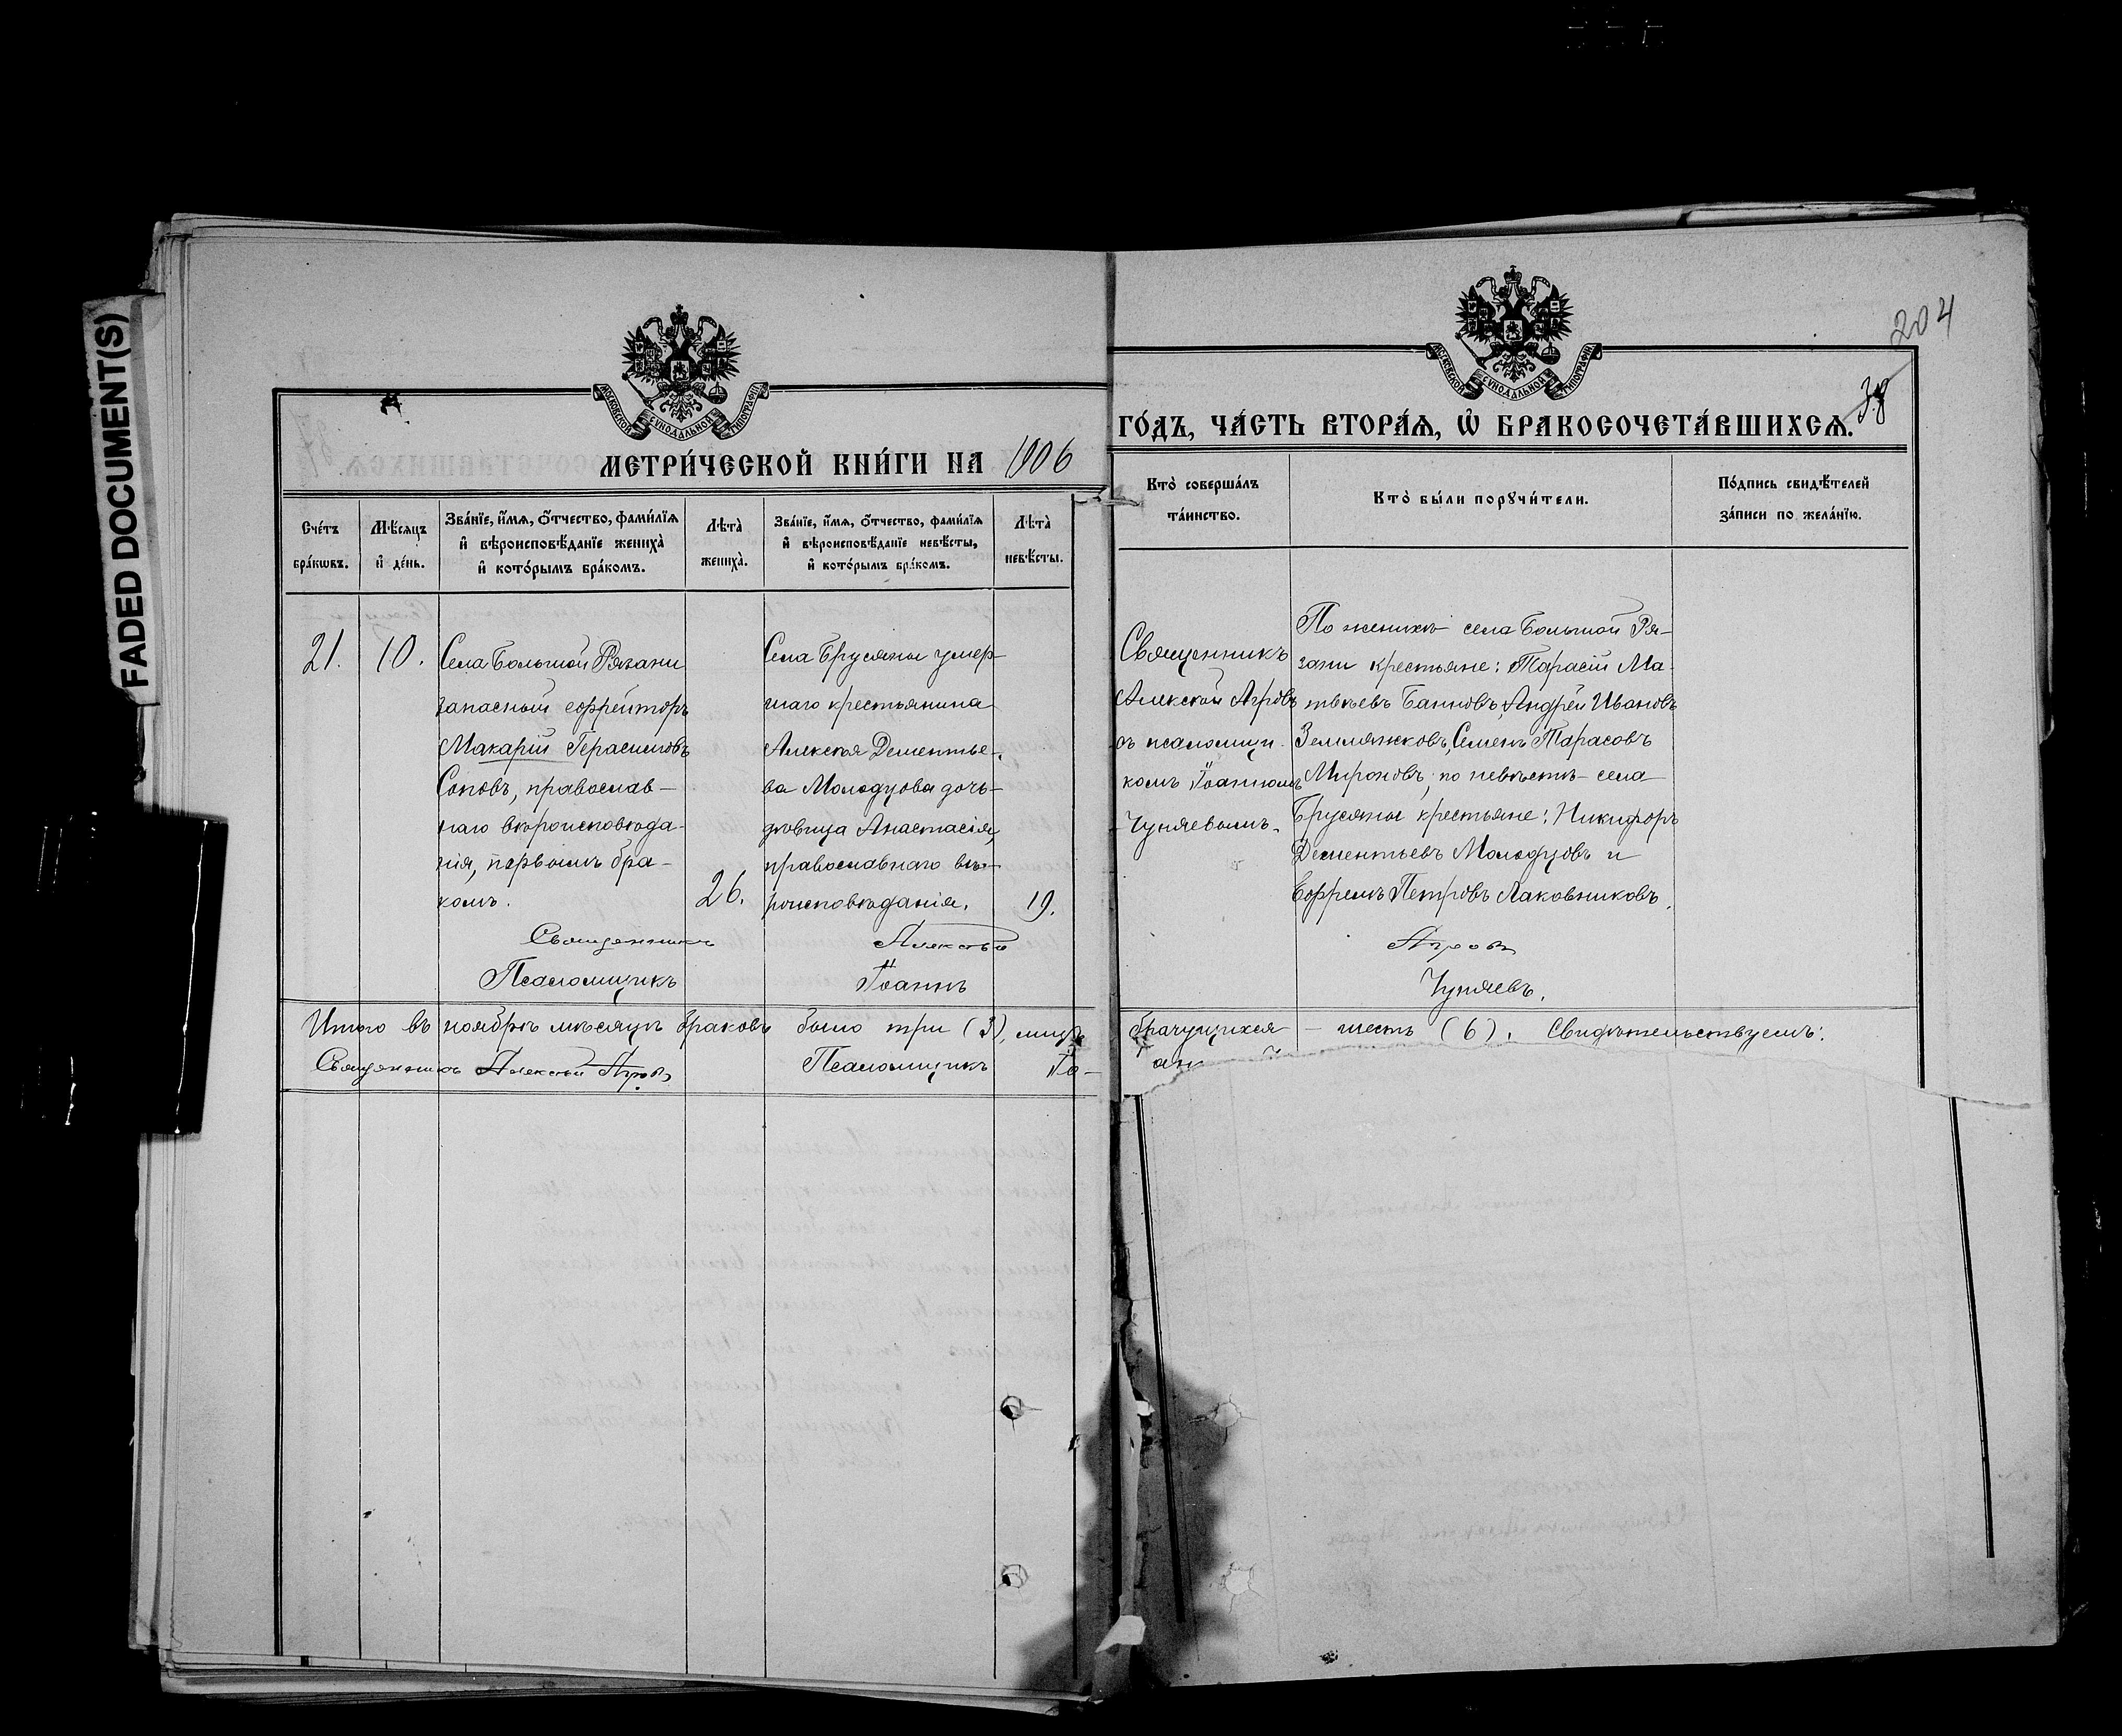 FADED DOCUMENT(S)
204
38
МОСКОВСКОЙ СѴНОДАЛЬНОЙ ТИПОГРАФІИ
МОСКОВСКОЙ СѴНОДАЛЬНОЙ ТИПОГРАФІИ
МЕТРИ́ЧЕСКОЙ КНИ́ГИ НА 1906
ГО́ДЪ, ЧА́СТЬ ВТОРА́Я, Ѡ҆ БРАКОСОЧЕТА́ВШИХСѦ.
Сче́тъ бра́кѡвъ.
Мѣ́сяцъ и҆ де́нь.
Зва́нїе, и҆́мя, ѻ҆́тчество, фами́лїя и҆ вѣроисповѣ́данїе жениха̀ и҆ кото́рымъ бра́комъ.
Лѣта̀ жениха̀.
Зва́нїе, и҆́мя, ѻ҆́тчество, фами́лїя и҆ вѣроисповѣ́данїе невѣ́сты, и҆ кото́рымъ бра́комъ.
Лѣта̀ невѣ́сты.
Кто̀ соверша́лъ та́инство.
Кто̀ бы́ли порꙋчи́тели.
По́дпись свидѣ́телей за́писи по жела́нїю.
21.
10.
Села Большой Рязани
запасный ефрейторъ
Макарій Герасимовъ
Соповъ, православ-
наго вѣроисповѣда-
нія, первымъ бра-
комъ.
26.
Села Брусяны умер-
шаго крестьянина
Алексѣя Дементье-
ва Молодцова дочь
дѣвица Анастасія,
православнаго вѣ-
роисповѣданія.
19.
Священникъ
Алексѣй Агровъ
съ псаломщи-
комъ Іоанномъ
Чуняевымъ.
По женихѣ села Большой Ря-
зани крестьяне: Тарасій Ма-
твѣевъ Банновъ, Андрей Ивановъ
Земляжковъ, Семенъ Тарасовъ
Мироновъ; по невѣстѣ села
Брусяны крестьяне: Никифоръ
Дементьевъ Молодцовъ и
Ефремъ Петровъ Лаковниковъ.
Священникъ Алексѣй Агровъ
Псаломщикъ Іоаннъ Чуняевъ.
Итого въ ноябрѣ мѣсяцѣ браковъ было три (3), лицъ брачущихся - шесть (6). Свидѣтельствуемъ:
Священникъ Алексѣй Агровъ Псаломщикъ Іо-